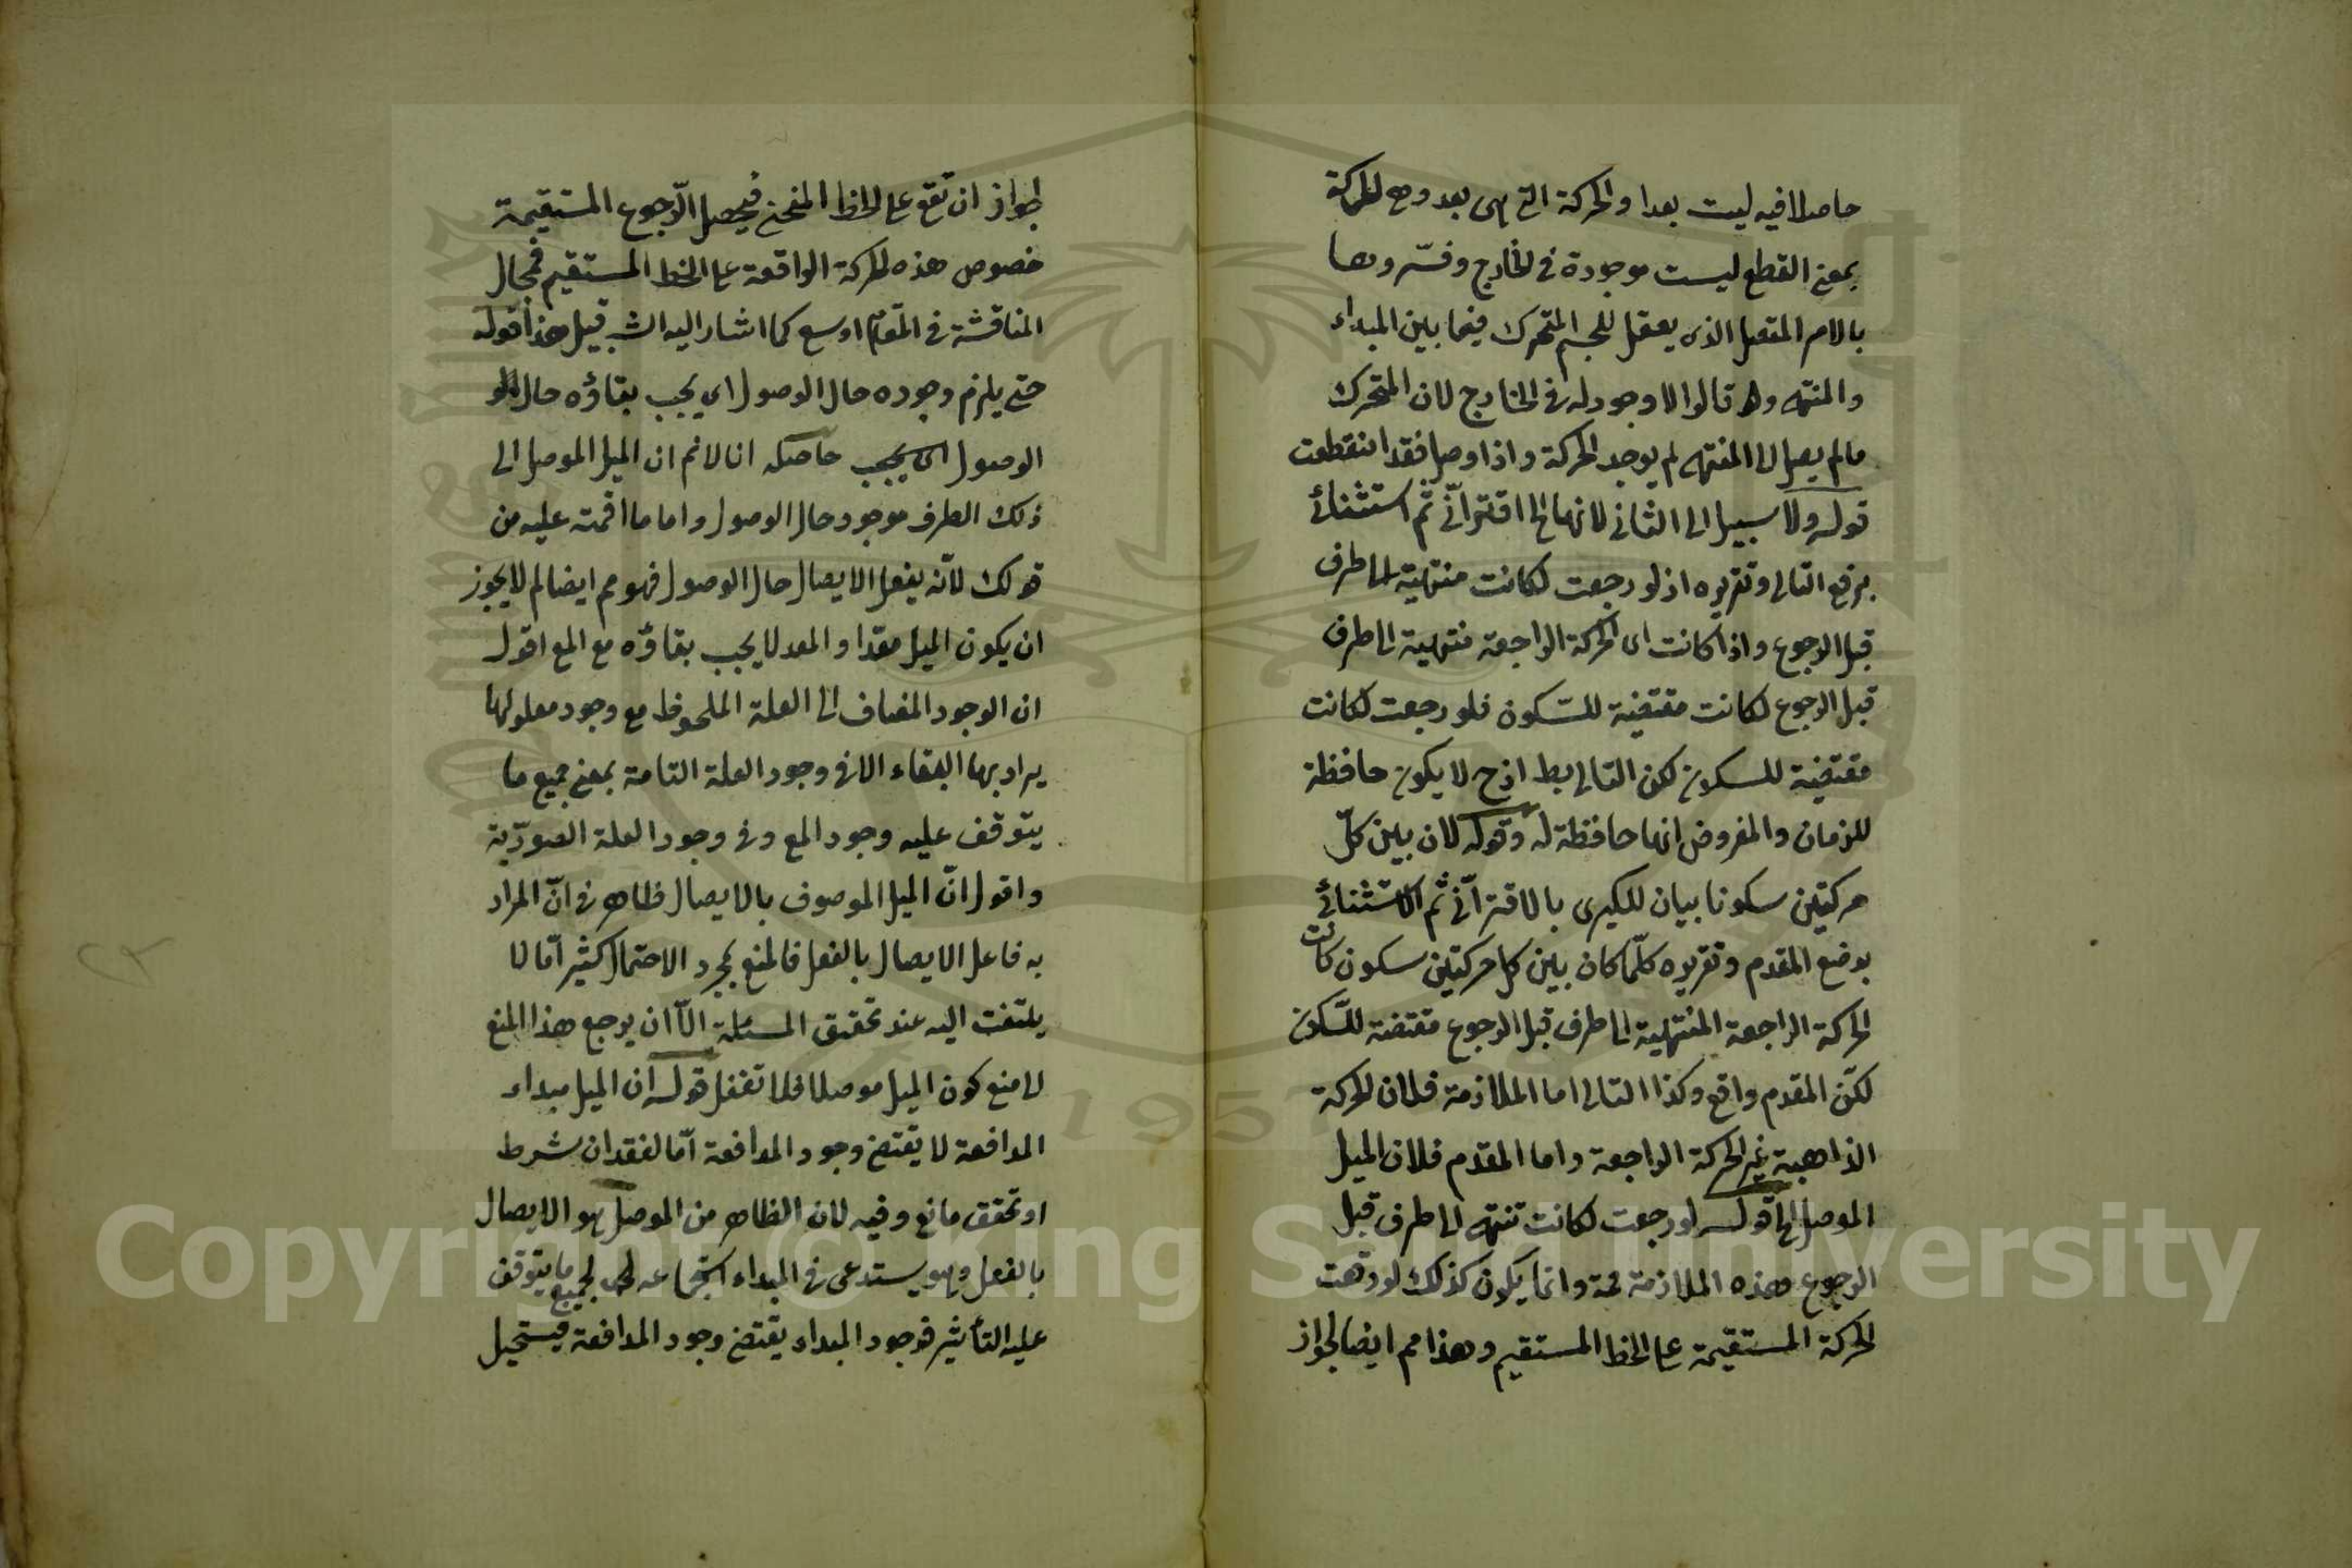 حاصلا فيه ليست بعدا والحركة التي هي بعد وهي الحركة
بمعنى القطع ليست موجودة في الخارج وفسّروها
بالامر المتصل الذي يعقل للجسم المتحرك فيما بين المبداء
والمنتهى وقد قالوا لا وجود له في الخارج لان المتحرك
مالم يصل الى المنتهى لم يوجد الحركة واذا وصل فقد انقطعت
قوله ولا سبيل الى الثاني لانها الخ اقترانّي ثم استثنائي
برفع التالي وتقريره اذ لو رجعت لكانت منتهية الى طرف
قبل الرجوع واذا كانت اى الحركة الراجعة منتهية الى طرف
قبل الرجوع لكانت مقتضية للسّكون فلو رجعت لكانت
مقتضية للسكون لكن التالي بط اذ ح لا يكون حافظة
للزمان والمفروض انها حافظة له وقوله لان بين كلّ
حركتين سكونا بيان للكبرى بالاقترانّي ثم الاستثنائي
بوضع المقدم وتقريره كلّما كان بين كل حركتين سكون كانت
الحركة الراجعة المنتهية الى طرف قبل الرجوع مقتضة للسّكون
لكنّ المقدم واقع وكذا التالي اما الملازمة فلان الحركة
الذاهبة غير الحركة الراجعة واما المقدم فلان الميل
الموصل الخ قوله لو رجعت لكانت تنتهى الى طرف قبل
الرجوع وهذه الملازمة ممة وانما يكون كذلك لو وقعت
الحركة المستقيمة على الخط المستقيم وهذا مم ايضا لجواز
لجواز ان تقع على الخط المنحني فيحصل الرّجوع المستقيمة
خصوص هذه الحركة الواقعة على الخط المستقيم فمجال
المناقشة في المقام اوسع كما اشار اليه الش قبيل هذا قوله
حتى يلزم وجوده حال الوصول اي يجب بقاؤه حال
الوصول اى يجب حاصله انا لانم ان الميل الموصل الى
ذلك الطرف موجود حال الوصول واما ما اقمته عليه من
قولك لانّه يفعل الايصال حال الوصول فهو مم ايضا لم لا يجوز
ان يكون الميل معّدا والمعد لا يجب بقاؤه مع المع اقول
ان الوجود المضاف الى العلة الملحوظ مع وجود معلولها
يراد بها البقاء الا في وجود العلة التامة بمعنى جميع ما
يتوقف عليه وجود المع وفي وجود العلة الصورّية
واقول انّ الميل الموصوف بالايصال ظاهر في انّ المراد
به فاعل الايصال بالفعل فالمنع بمجرد الاحتمال كثير امّا لا
يلتفت اليه عند تحقيق المسئلة الّا ان يرجع هذا المنع
الى منع كون الميل موصلا فلا تغفل قوله ان الميل مبداء
المدافعة لا يقتضي وجود المدافعة امّا لفقدان شرط
او تحقق مانع وفيه لان الظاهر من الموصل هو الايصال
بالفعل وهو يستدعى في المبداء استجماعه لجميع ما يتوقف
عليه التأثير فوجود المبداء يقتضي وجود المدافعة فيستحيل